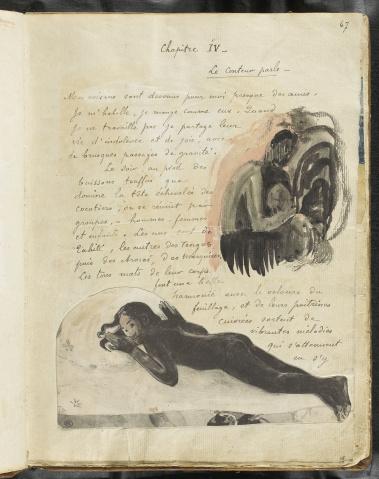 67
Chapitre IV –
Le Conteur parle –
Mes voisins sont devenus pour moi presque des amis.
Je m'habille, je mange comme eux. Quand
je ne travaille pas je partage leur
vie d'indolence et de joie, avec
de brusques passages de gravité.
Le soir, au pied des
buissons touffus que
domine la tête échevelée des
cocotiers, on se réunit par
groupes, – hommes, femmes
et enfants. Les uns sont de
Tahiti, les autres des Tongas
puis des Arorai, des Marquises.
Les tons mats de leur corps
font une belle
harmonie avec le velours du
feuillage, et de leurs poitrines
cuivrées sortent de
vibrantes mélodies
qui s'atténuent
en s'y